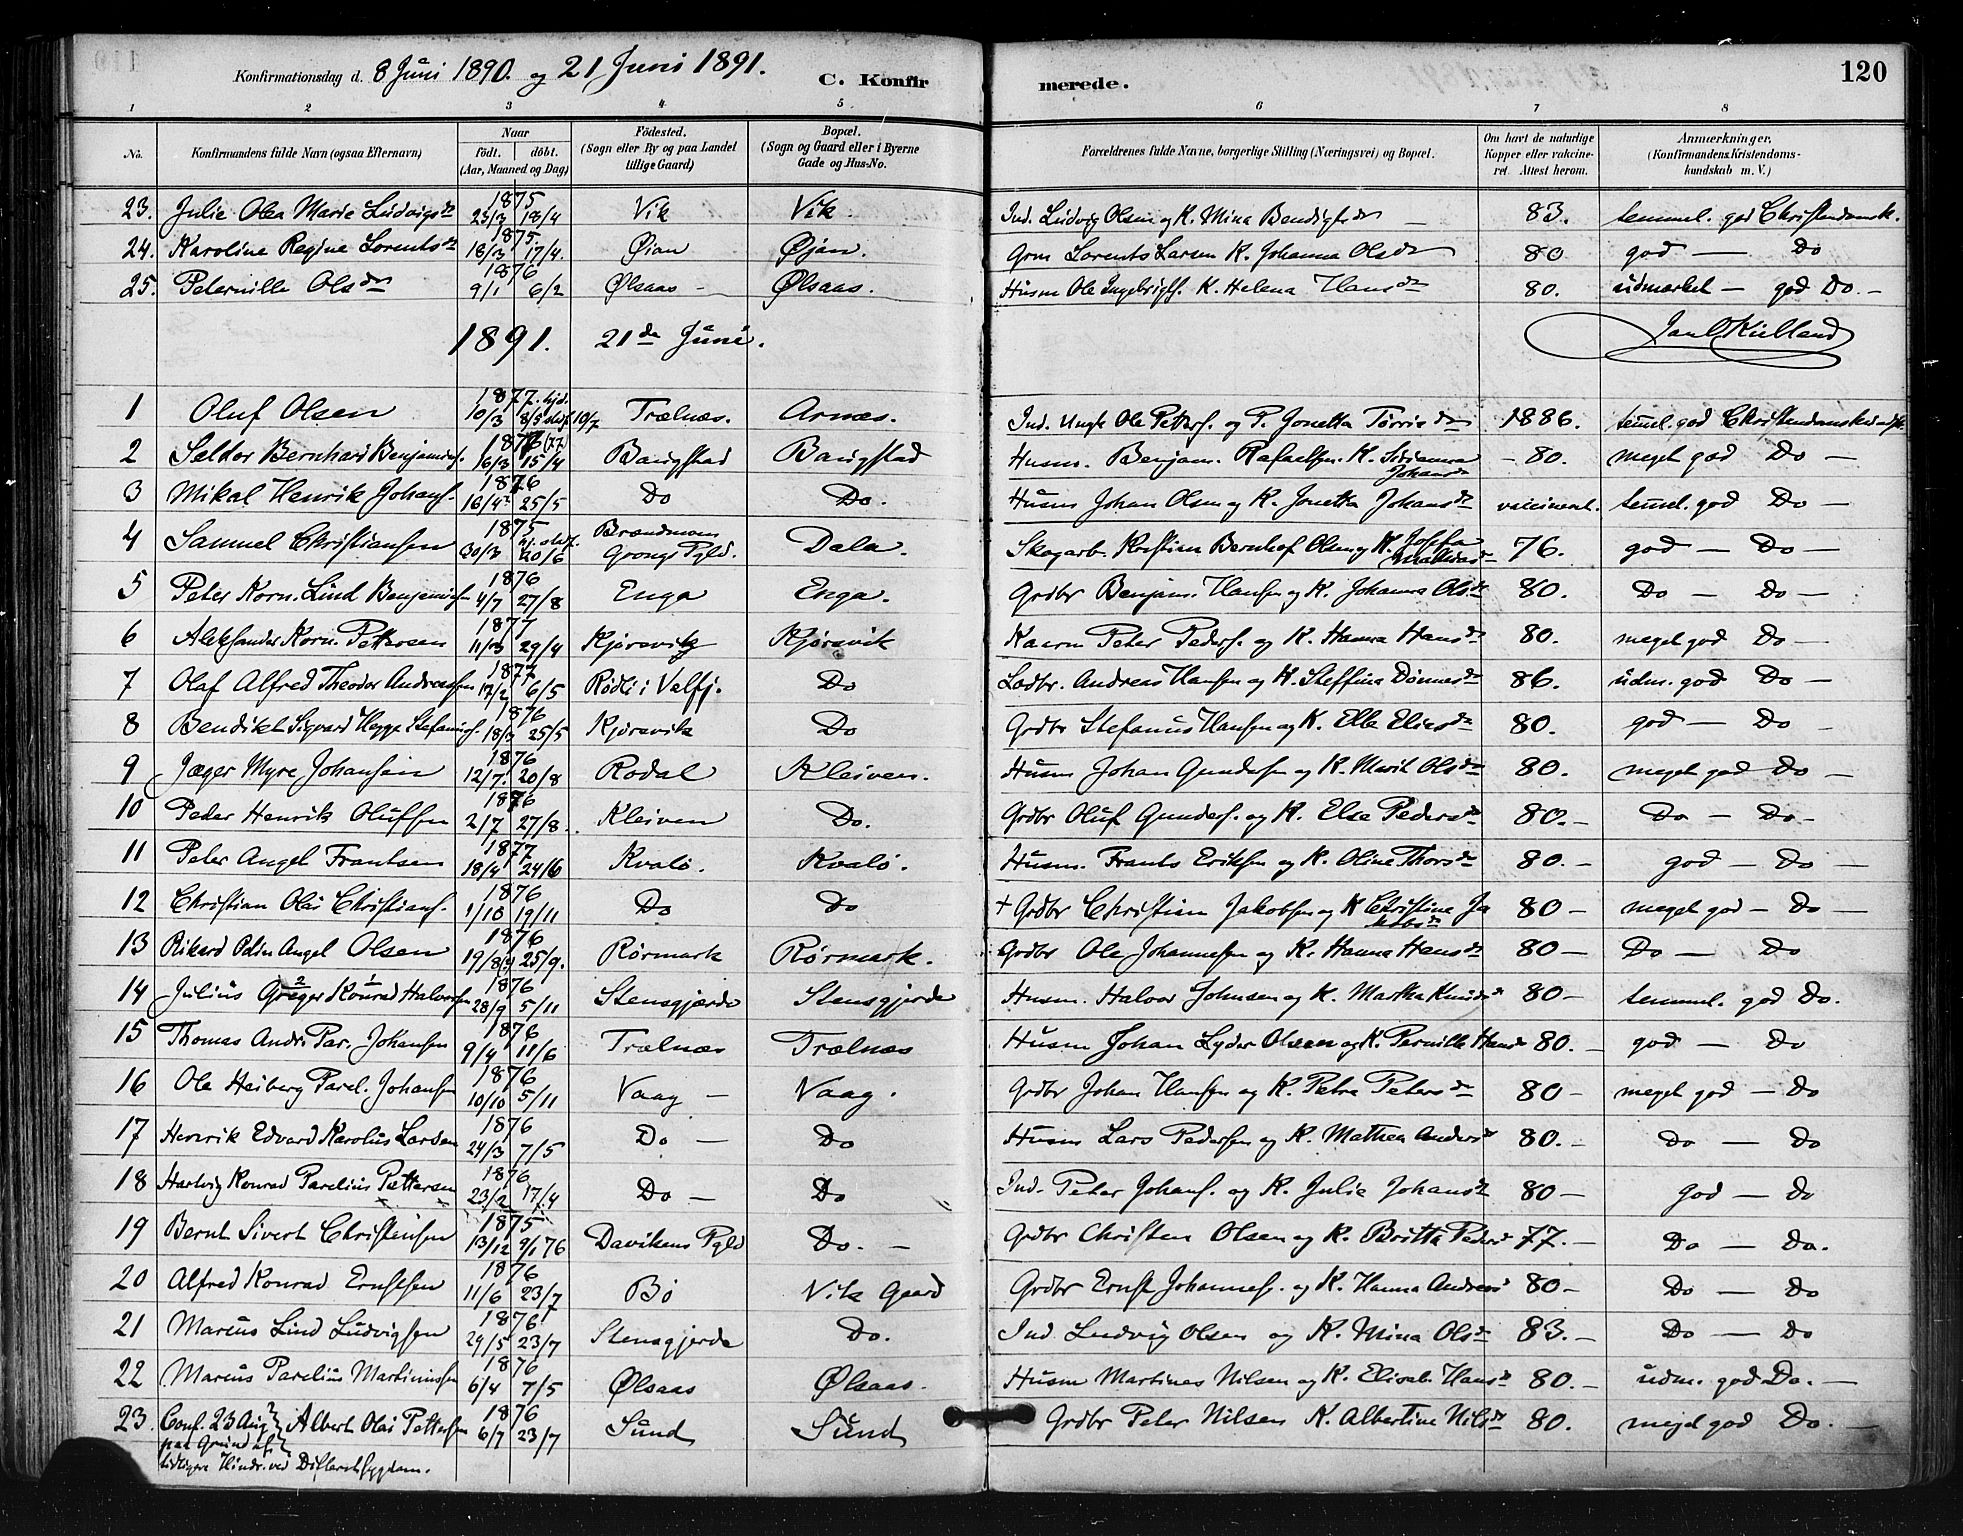 Konfirmationsdag d. 8 Juni 1890. og 21 Juni 1891. C. Konfirmerede. 120
1 2 3 4 5 6 7 8
No. Konfirmandens fulde Navn (ogsaa Efternavn) Naar født. døbt. (Aar, Maaned og Dag) Fødested. (Sogn eller By og paa Landet tillige Gaard) Bopæl. (Sogn og Gaard eller i Byerne Gade og Hus-No. Forældrenes fulde Navne, borgerlige Stilling (Næringsvei) og Bopæl. Om havt de naturlige Kopper eller vakcineret. Attest herom. Anmærkninger, (Konfirmandens Kristendomskundskab m. V.)
23. Julie Olea Marie Ludvigsdr 1875 23/3 18/4 Vik Vik. Ind. Ludvig Olsen og K. Mina Bendigtsdr 83. temmel. god Christendomsk.
24. Karoline Regine Lorentsdr 1875. 18/3 17/4. Øian Øjan. Grm Lorents Larsen K. Johanna Olsdr 80 god — Do
25. Peternille Olsdr 1876 9/1 6/2 Ølsaas — Ølsaas. Husm Ole Ingebrigts. K. Helena Hansdr 80. udmerket — god Do. —
1891. 21de Juni. Jan C Kielland
1 Oluf Olsen 1877. hjd. 10/3 8/5 stdf. 10/7 Trælnæs. Arnæs. Ind. Ungk Ole Petters. og P. Jonetta Tørrisdr 1886. temml. god Christendomskundsk
2 Seldor Bernhard Benjamins. 1876 (77) 16/3 15/4 Bangstad Bangstad Husm. Benjam. Rafaelsen. K. Johansdr — 80. meget god Do —
3 Mikal Henrik Johans. 1876 16/4 25/5 Do Do. Husm Johan Olsen og K. Jonetta Johansdr vaccineret. temml. god Do —
4 Samuel Christiansen 1875 30/3 20/6 Brændmoen Grongs Pgld. Dala. Skogarb. Kristian Bernhof Olsen og K. Josefa 76. god — Do —
5 Peter Korn. Lind Benjaminsen 1876 4/7 27/8 Enga Enga. Grdbr Benjam. Hansen og K. Johanna Olsdr 80. Do — Do —
6 Aleksander Korn. Pettersen 1877 11/3 29/4 Kjøravik Kjøravik Kaarm Peter Peders. og K. Hanna Hansdr 80. meget god Do —
7 Olaf Alfred Theodor Andreassen 1877 17/2 6/5 Rødli i Velfj. Do Lodbr. Andreas Hansen og K. Steffina Dønnesdr 86. udm. god Do —
8 Bendikt Sigvard Hegge Stefanus. 1876 18/3 25/5 Kjøravik Do Grdbr Stefanus Hansen og K. Elle Eliasdr 80. god — Do
9 Jæger Myre Johansen 1876 12/7. 20/8 Rodal Kleiven. Husm Johan Gundersen og K. Marit Olsdr 80. meget god Do —
10 Peder Henrik Oluffsen 1876 2/7 27/8. Kleiven Do. Grdbr Oluf Gunders. og K. Else Pedersdr 80. — Do — Do —
11 Peter Angel Frantsen 1877 18/4 24/6 Kvalø. Kvalø. Husm. Frants Eriksen og K. Oline Thorsdr 80. — god — Do —
12 Christian Olai Christians. 1876 1/10 19/11 Do Do + Grdbr Christian Jakobsen og K Christina Jakobsdr 80 — meget god — Do —
13 Rikard Odin Angel Olsen 1876 19/8 25/9. Rørmark Rørmark. Grdbr Ole Johannesen og K. Hanna Hansdr 80 — Do — Do
14 Julius Greger 2 Konrad 1 Halvorsen 1876 28/9 5/11 Stensgjerde Stensgjerde Husm. Halvor Johnsen og K. Martha Knudsdr 80 — temmel. god Do.
15 Thomas Andr. Par. Johansen 1876 9/4 11/6 Trælnæs Trælnæs Husm Johan Lyder Olsen og K. Pernille Hansdr 80. — god — Do
16 Ole Heiberg Parel. Johansen 1876 10/10 5/11 Vaag — Vaag. Grdbr Johan Hansen og K. Petra Petersdr 80 — meget god — Do
17 Henrik Edvard Karolus Larsen 1876 24/3 7/5 Do — Do Husm Lars Pedersen og K. Mathea Andersdr 80. — Do — Do
18 Hartvig Konrad Parelius Pettersen 1876 23/2 17/4 Do — Do Ind. Peter Johans. og K. Julie Johansdr 80 — god — do
19 Bernt Sivert Christensen 1875 13/12 9/1 76 Davikens Pgld Do. — Grdbr Christen Olsen og K. Britta Pedersdr 77. — Do — Do.
20 Alfred Konrad Ernstsen 1876 11/6 23/7 Bø Vik Gaard Grdbr Ernst Johannes. og K. Hanna Andreasdr 80 — Do — Do
21 Marcus Lind Ludvigsen 1876 29/5 23/7 Stensgjerde Do. Ind Ludvig Olsen og K. Mina Olsdr 83. — Do — Do
22 Marcus Parelius Martinussen 1876 6/4 7/5 Ølsaas Ølsaas. Husm Martines Nilsen og K. Elisab. Hansdr 80. — udm. god Do. —
23. Conf. 23 Aug Albert Olai Pettersen 1876 6/7 23/7 Sund Sund Grdbr Peter Nilsen K. Albertine Nilsdr 80. meget god Do. —
paa Grund af
tidligere Hindr. ved Difteritsygdom.